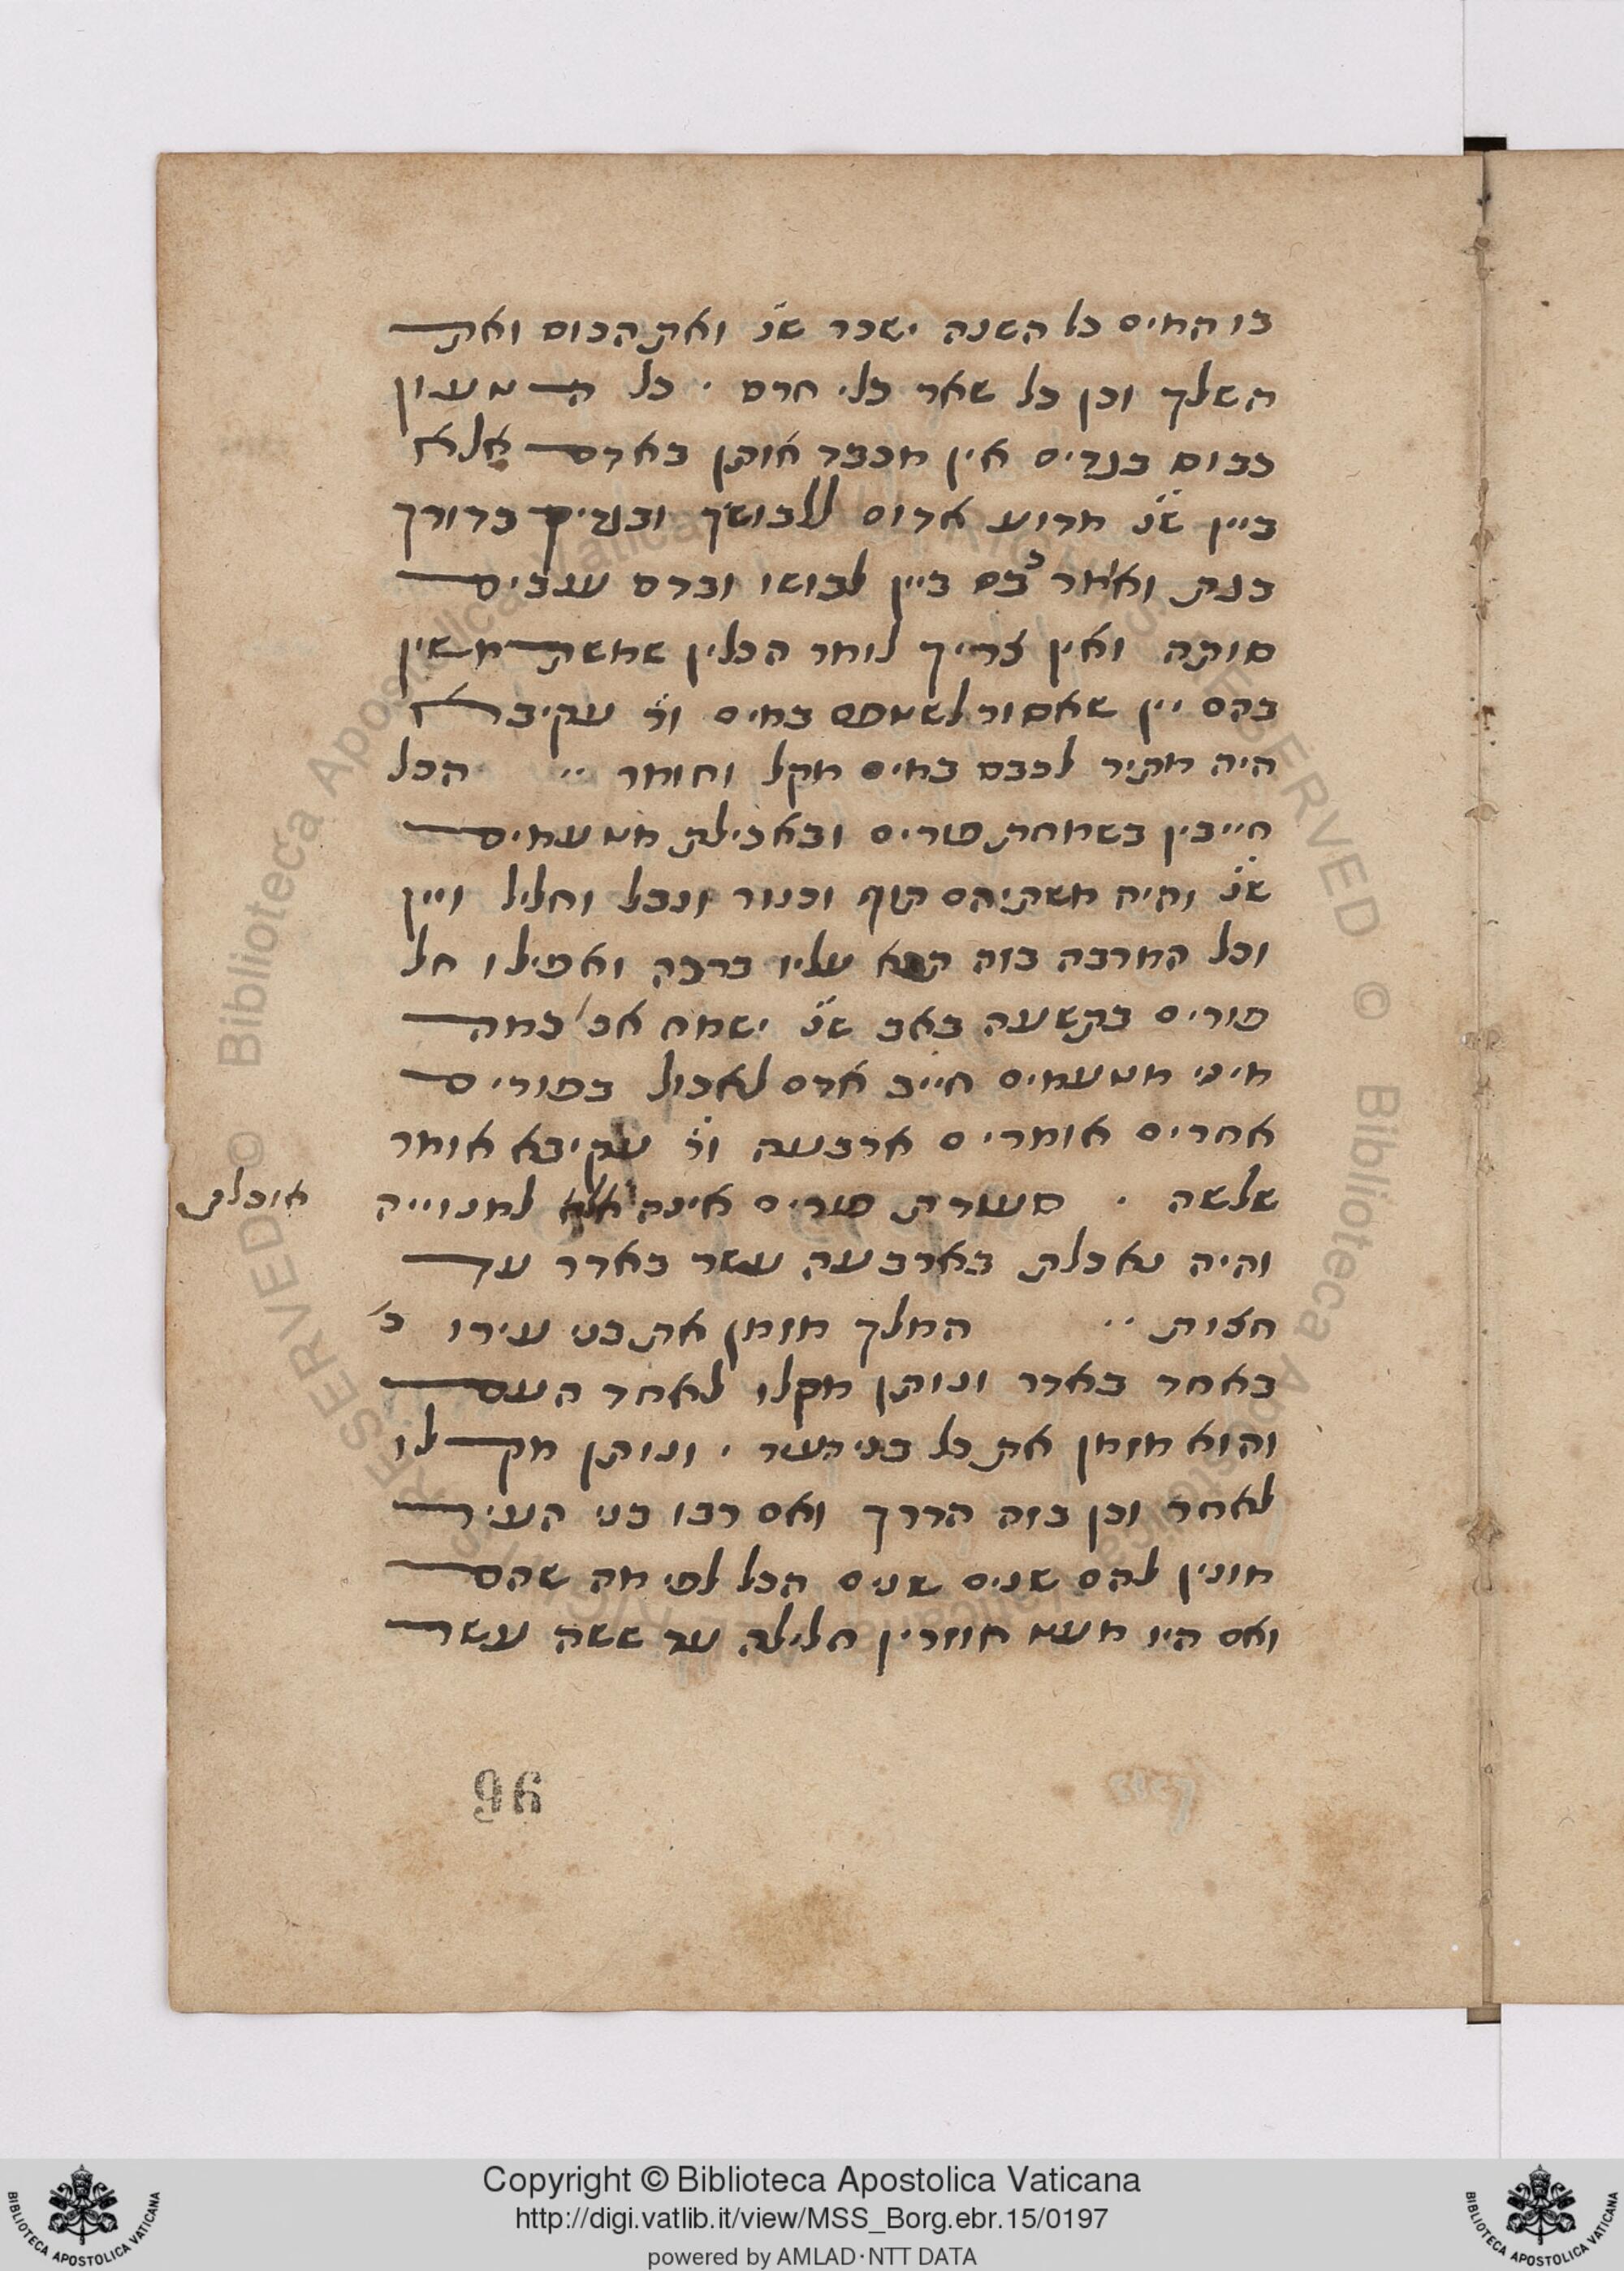 בו המים כל השנה ישבר שנ' ואת הכוס ואת
השלך וכן כל שאר כלי חרס . כל הטעון
כבוס בגדים אין מכבד אותן באדם אלא
ביין שנ' מדוע אדום ללבושך ובגדיך כדורך
בגת ואומר כבס ביין לבושו ובדם ענבים
סותה ואין צריך לומר הכלין שמשתמשין
בהם יין שאסור לשטפם במים ור' עקיבא
היה מתיר לכבס במים מקל וחומר .. הכל
חייבין בשמחת פורים ובאכילת מטעמים
שנ' והיה משתיהם תוף וכנור ונבל וחליל ויין
וכל המרבה בזה תבא עליו ברכה ואפילו חל
פורים בתשעה באב שנ' ישמח אב' כמה
מיני מטעמים חייב אדם לאכול בפורים
אחרים אומרים ארבעה ור' עקיבא אומר
שלשה . סעודת פורים אינה אלא למנוייה
אוכלת
והיה נאכלת בארבעה עשר באדר עד
חצות .. המלך מזמן את בני עירו כ'
באחד באדר ונותן מקלו לאחד העם
והוא מזמן את כל בני העיר . ונותן מקלו
לאחר וכן בזה הדרך ואם רבו בני העיר
מונין להם שנים שנים הכל לפי מה שהם
ואם היו מעט חוזרין חלילה עד ששה עשר
96
Copyright © Biblioteca Apostolica Vaticana
http://digi.vatlib.it/view/MSS_Borg.ebr.15/0197
powered by AMLAD·NTT DATA